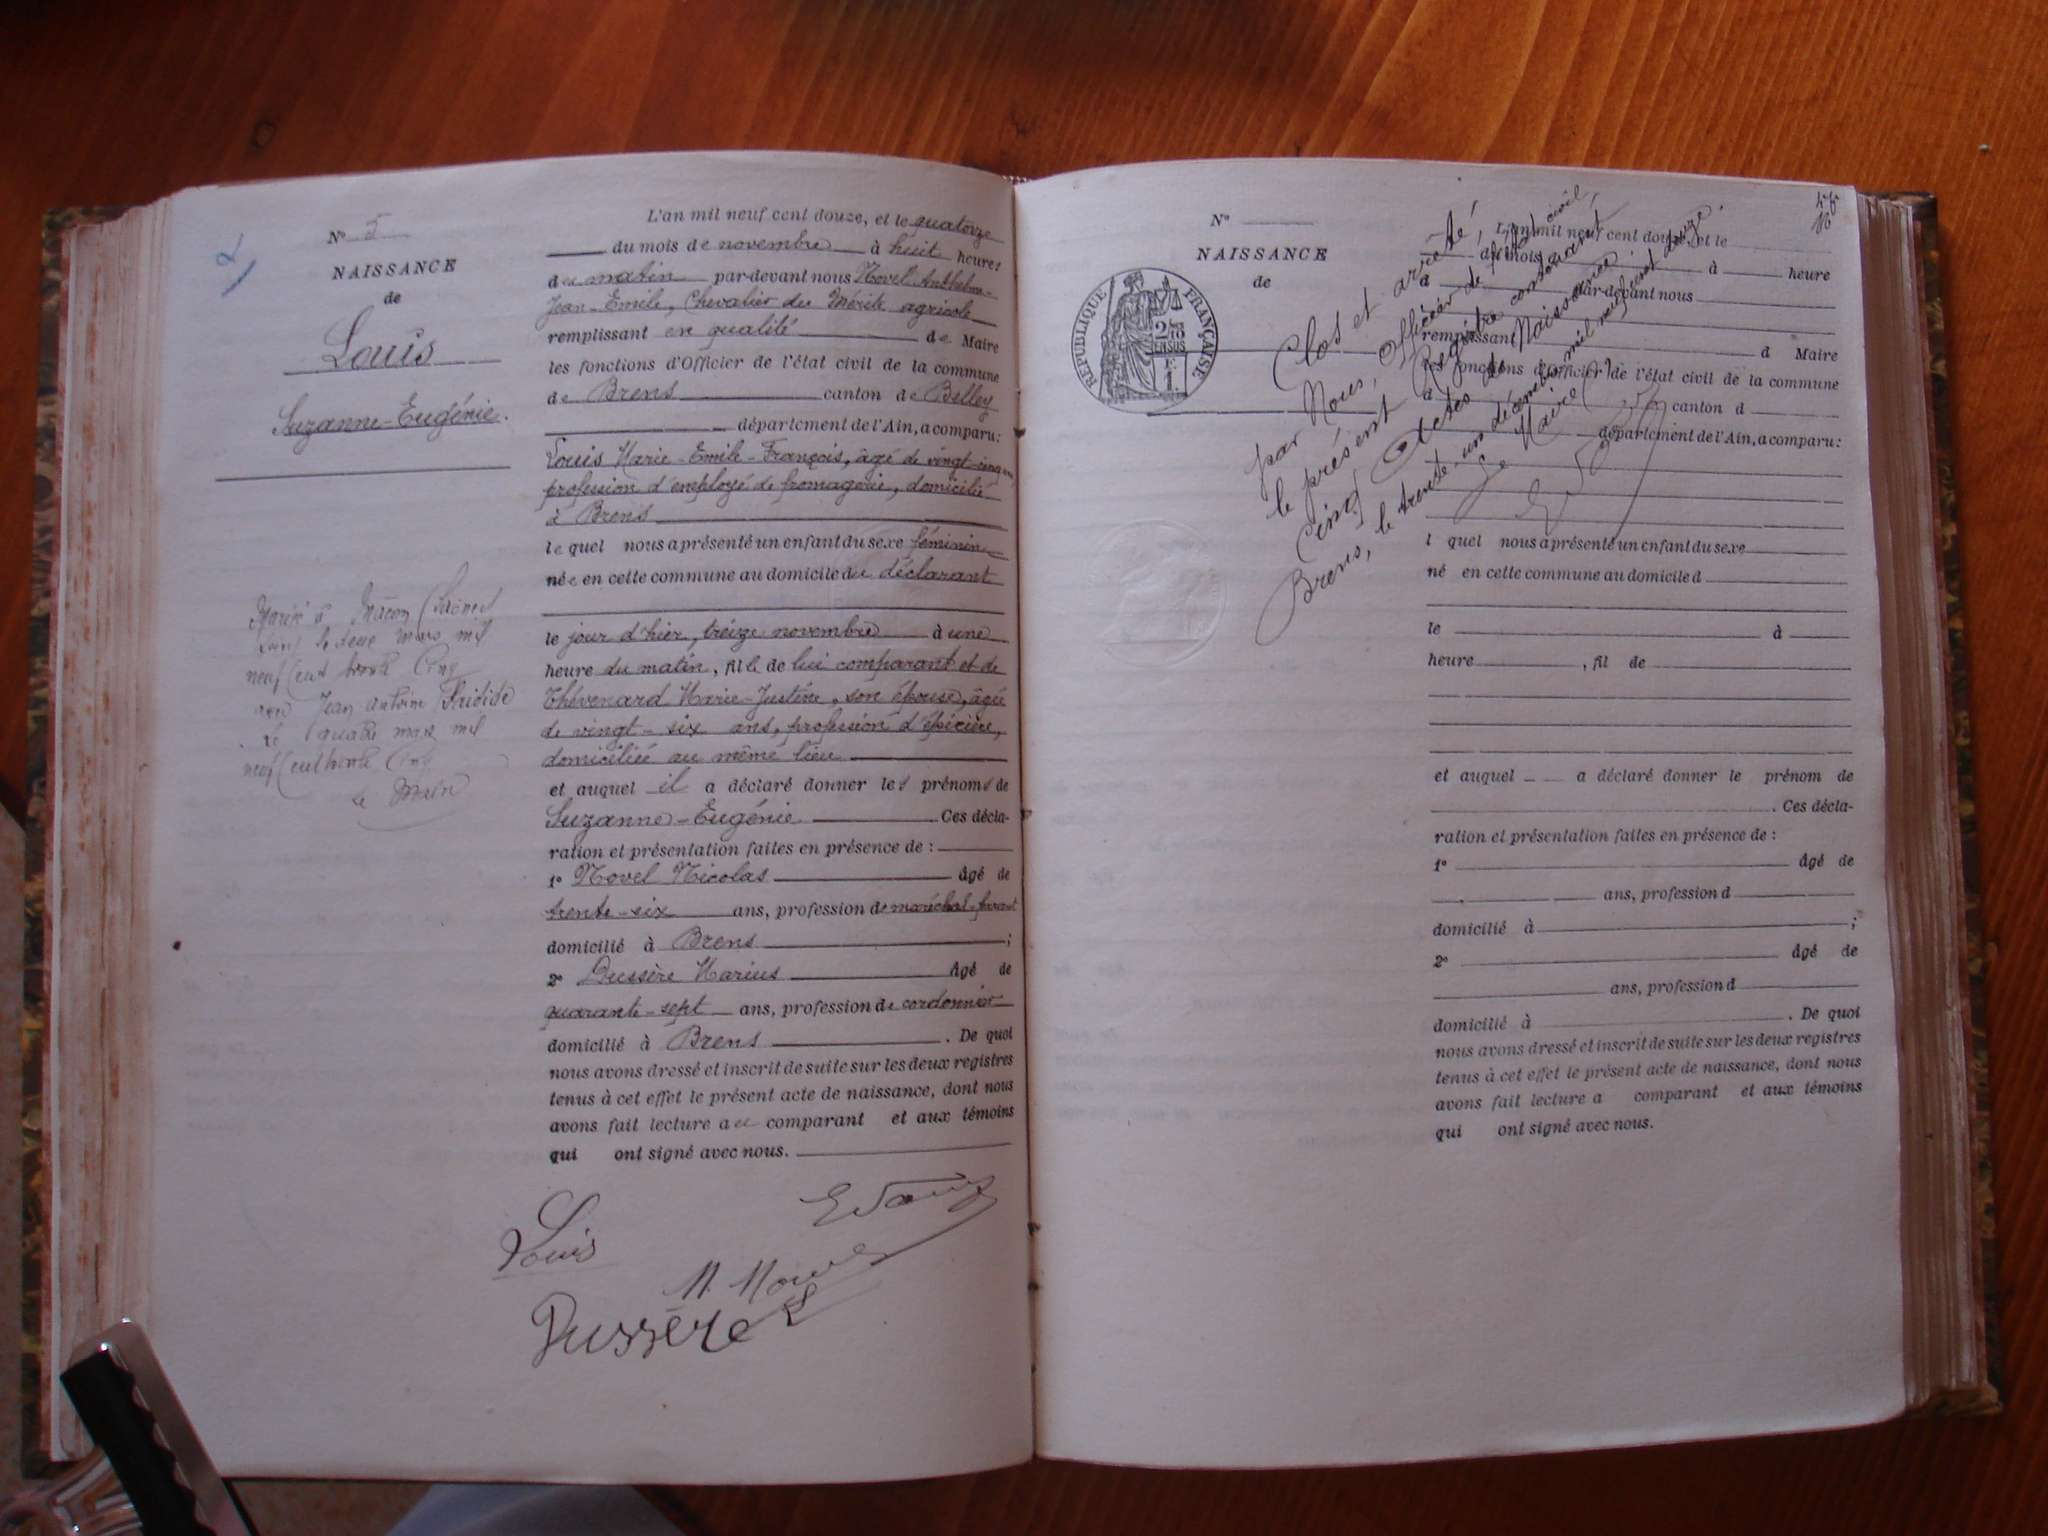 N° 5
NAISSANCE
de
Louis
Suzanne-Eugénie.
Marié à Mâcon
mars mil
neuf cent trente cinq
avec Jean Antoine
Le quatre mars mil
neuf cent trente cinq
Le Maire
L'an mil neuf cent douze, et le quatorze
du mois de novembre à huit heures
du matin par-devant nous Novel Anthelme-
Jean-Emile, Chevalier du Mérite agricole
remplissant en qualité de Maire
les fonctions d'Officier de l'état civil de la commune
de Brens canton de Belley
département de l'Ain, a comparu:
Louis Marie-Emile-François, âgé de vingt-cinq ans,
profession d'employé de fromagerie, domicilié
à Brens
lequel nous a présenté un enfant du sexe féminin
née en cette commune au domicile du déclarant
le jour d'hier, treize novembre à une
heure du matin, fille de lui comparant et de
Thévenard Marie-Justine, son épouse, âgée
de vingt-six ans, profession d'épicière,
domiciliée au même lieu
et auquel il a déclaré donner les prénoms de
Suzanne-Eugénie Ces décla-
ration et présentation faites en présence de :
1° Novel Nicolas Agé de
trente-six ans, profession de maréchal-ferrant
domicilié à Brens ;
2° Dussère Marius Agé de
quarante-sept ans, profession de cordonnier
domicilié à Brens . De quoi
nous avons dressé et inscrit de suite sur les deux registres
tenus à cet effet le présent acte de naissance, dont nous
avons fait lecture au comparant et aux témoins
qui ont signé avec nous.
Louis
N. Novel
Dussère
N°
NAISSANCE
de
RÉPUBLIQUE FRANÇAISE
2/10
EN SUS
1 F.
Clos et arrêté,
par Nous, Officier de l'état civil,
le présent Registre contenant
Cinq Actes de Naissance.
Brens, le trente-un décembre mil neuf cent douze.
Le Maire
L'an mil neuf cent douze, et le
du mois à heure
d par-devant nous
remplissant d Maire
les fonctions d'Officier de l'état civil de la commune
d canton d
département de l'Ain, a comparu:
l quel nous a présenté un enfant du sexe
né en cette commune au domicile d
le à
heure , fil de
et auquel a déclaré donner le prénom de
. Ces décla-
ration et présentation faites en présence de :
1° Agé de
ans, profession d
domicilié à ;
2° Agé de
ans, profession d
domicilié à . De quoi
nous avons dressé et inscrit de suite sur les deux registres
tenus à cet effet le présent acte de naissance, dont nous
avons fait lecture a comparant et aux témoins
qui ont signé avec nous.